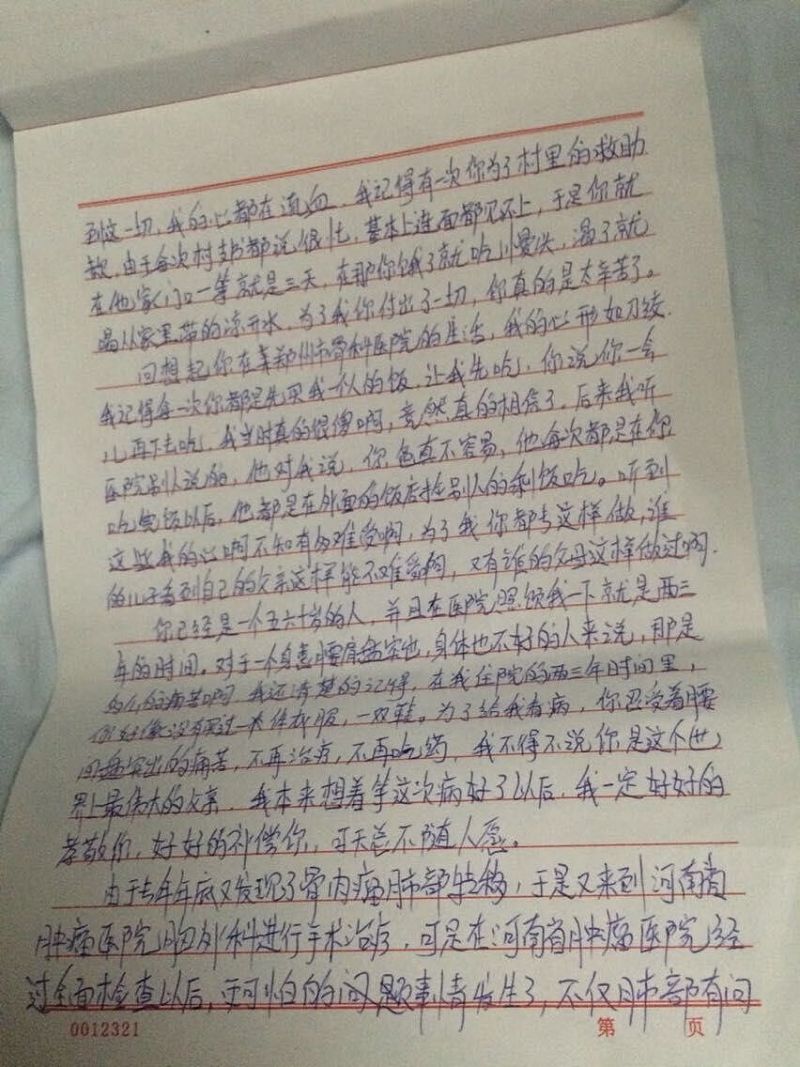 到这一切，我的心都在流血，我记得有一次你为了村里的救助
款，由于每次村支书都说很忙，基本上连面都见不上，于是你就
在他家门口一等就是三天，在那你饿了就吃川曼头，渴了就
喝从家里带的凉开水，为了我你付出了一切，你真的是太辛苦了。
回想起你在郑州市骨科医院的生活，我的心形如刀绞
我记得每一次你都是先买我一个人的饭，让我先吃，你说你一会
儿再下去吃，我当时真的很傻啊，竟然真的相信了，后来我听
医院别人说的，他对我说，你爸真不容易，他每次都是在你
吃完饭以后，他都是在外面的饭店捡别人的剩饭吃。听到
这些我的心啊不知有多难受啊，为了我你都去这样做，谁
的儿子看到自己的父亲这样能不难受啊，又有谁的父母这样做过啊.
你已经是一个五六十岁的人，并且在医院照顾我一下就是两三
年的时间。对于一个身患腰肩盘突出，身体也不好的人来说，那是
多么的痛苦啊，我还清楚的记得，在我住院的两三年时间里，
你好像没有买过一件衣服，一双鞋。为了给我看病，你忍受着腰
间盘突出的痛苦，不再治疗，不再吃药，我不得不说你是这个世
界上最伟大的父亲，我本来想着等这次病好了以后，我一定好好的
孝敬你，好好的补偿你，可天总不随人愿。
由于去年年底又发现了骨肉瘤肺部转移，于是又来到河南省
肿瘤医院胸外科进行手术治疗，可是在河南省肿瘤医院经
过全面检查以后，更可怕的问题事情发生了，不仅肺部有问
0012321 第 页